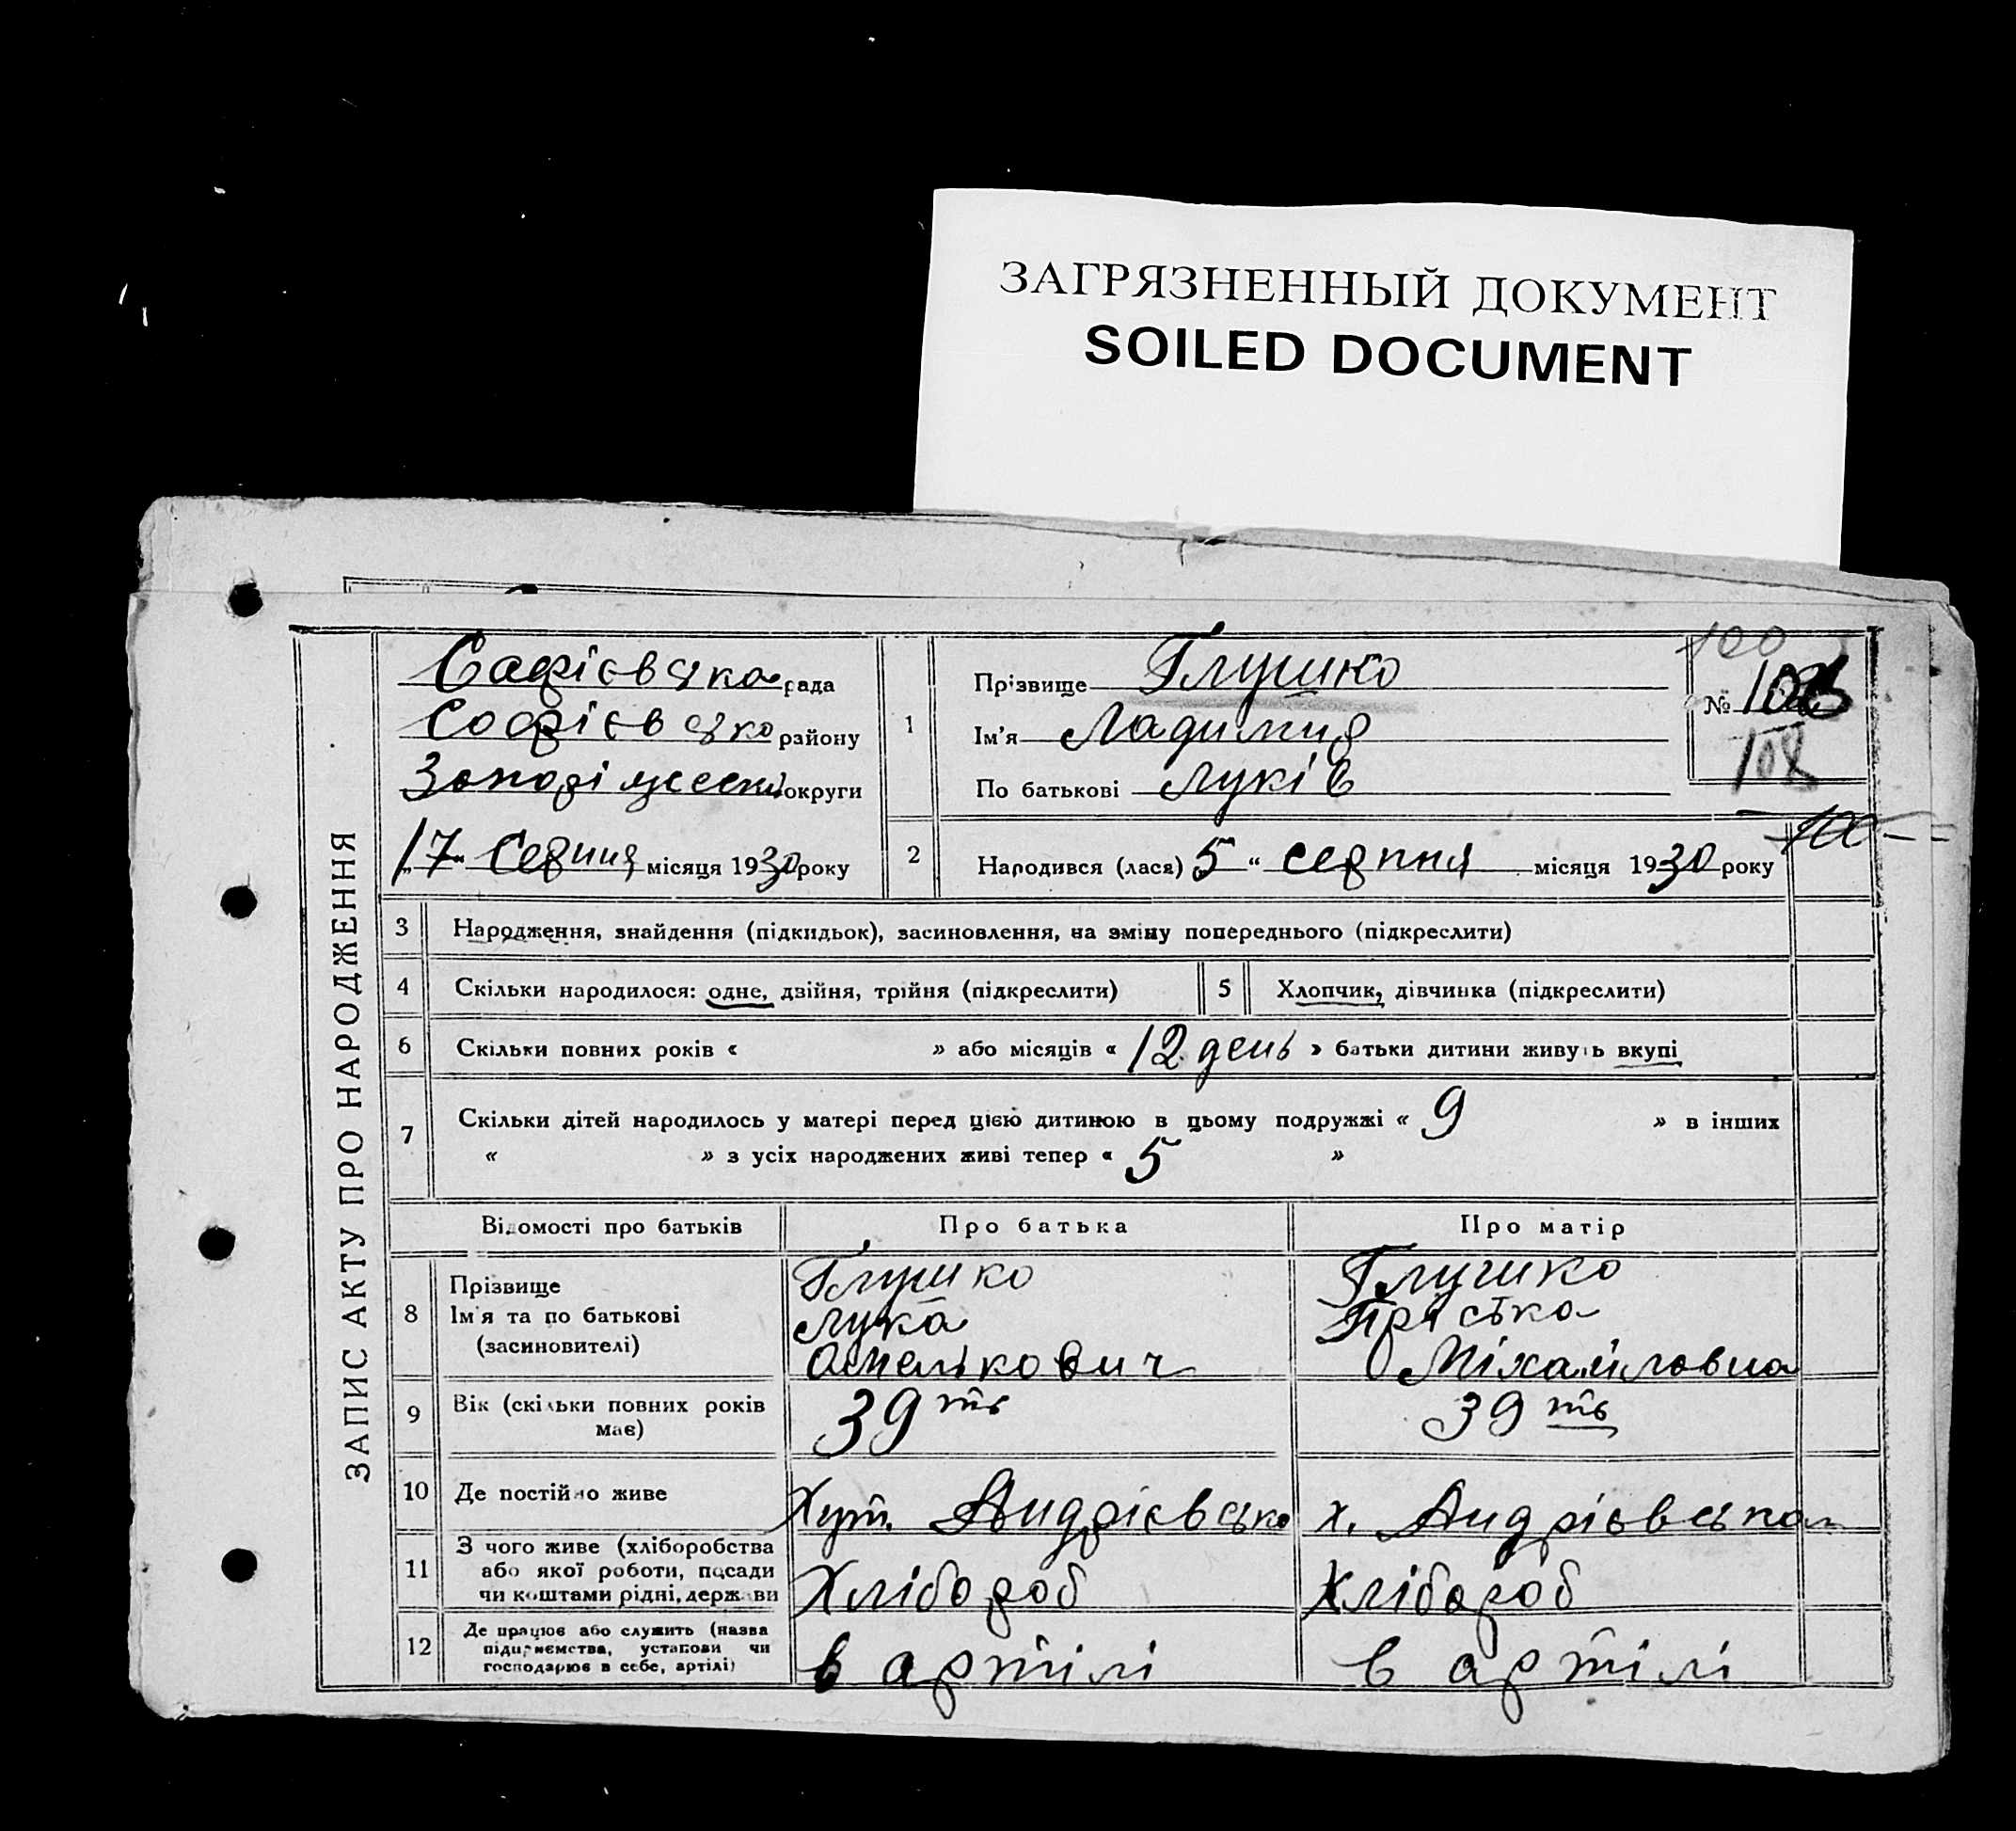 ЗАГРЯЗНЕННЫЙ ДОКУМЕНТ
SOILED DOCUMENT
ЗАПИС АКТУ ПРО НАРОДЖЕННЯ
Сафієвська рада
Софієвсько району
округи
„17“ Серпня місяця 1930 року
1
Прізвище Глушко
Ім'я Ладимир
По батькові Луків
100
№
108
100
2
Народився (лася) „5“ серпня місяця 1930 року
3 Народження, знайдення (підкидьок), засиновлення, на зміну попереднього (підкреслити)
4 Скільки народилося: одне, двійня, трійня (підкреслити)
5 Хлопчик, дівчинка (підкреслити)
6 Скільки повних років « » або місяців « 12 день » батьки дитини живуть вкупі
7 Скільки дітей народилось у матері перед цією дитиною в цьому подружжі « 9 » в інших
« » з усіх народжених живі тепер « 5 »
Відомості про батьків Про батька Про матір
8
Прізвище
Ім'я та по батькові
(засиновителі)
Глушко
Лука
Омелькович
Глушко
Пріська
Міхайловна
9
Вік (скільки повних років
має)
39 ть
39 ть
10 Де постійно живе
Хут. Андрієвсько
х. Андрієвська
11
З чого живе (хліборобства
або якої роботи, посади
чи коштами рідні, держави
Хлібороб
Хлібороб
12
Де працює або служить (назва
підприємства, установи чи
господарює в себе, артілі)
в артілі
в артілі